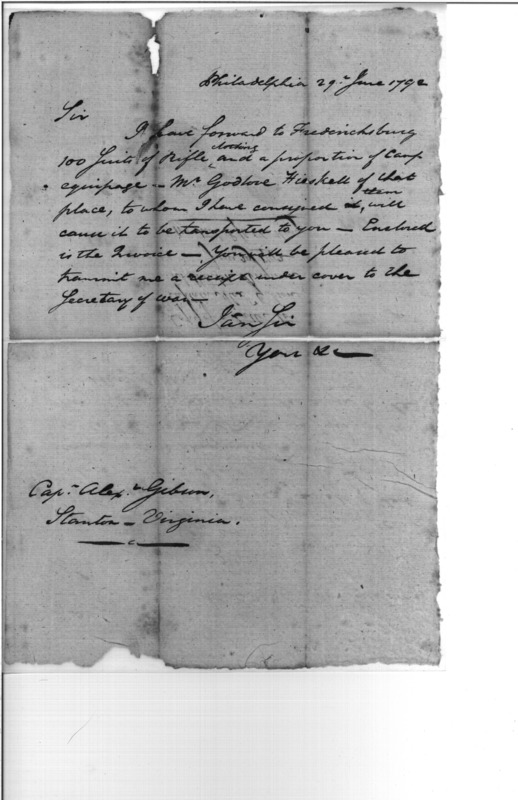 Philadelphia 29th June 1792
Sir
I have forward to Fredericksburg
100 Suits of Rifle clothing and a proportion of Camp
equipage – Mr Godlove Hieskell of that
place, to whom I have consigned it, them will
cause it to be transported to you – Enclosed
is the Invoice – You will be pleased to
transmit me a receipt under cover to the
Secretary of war –
I am Sir
Your &c
Capn Alexr Gibson,
Stanton – Virginia.